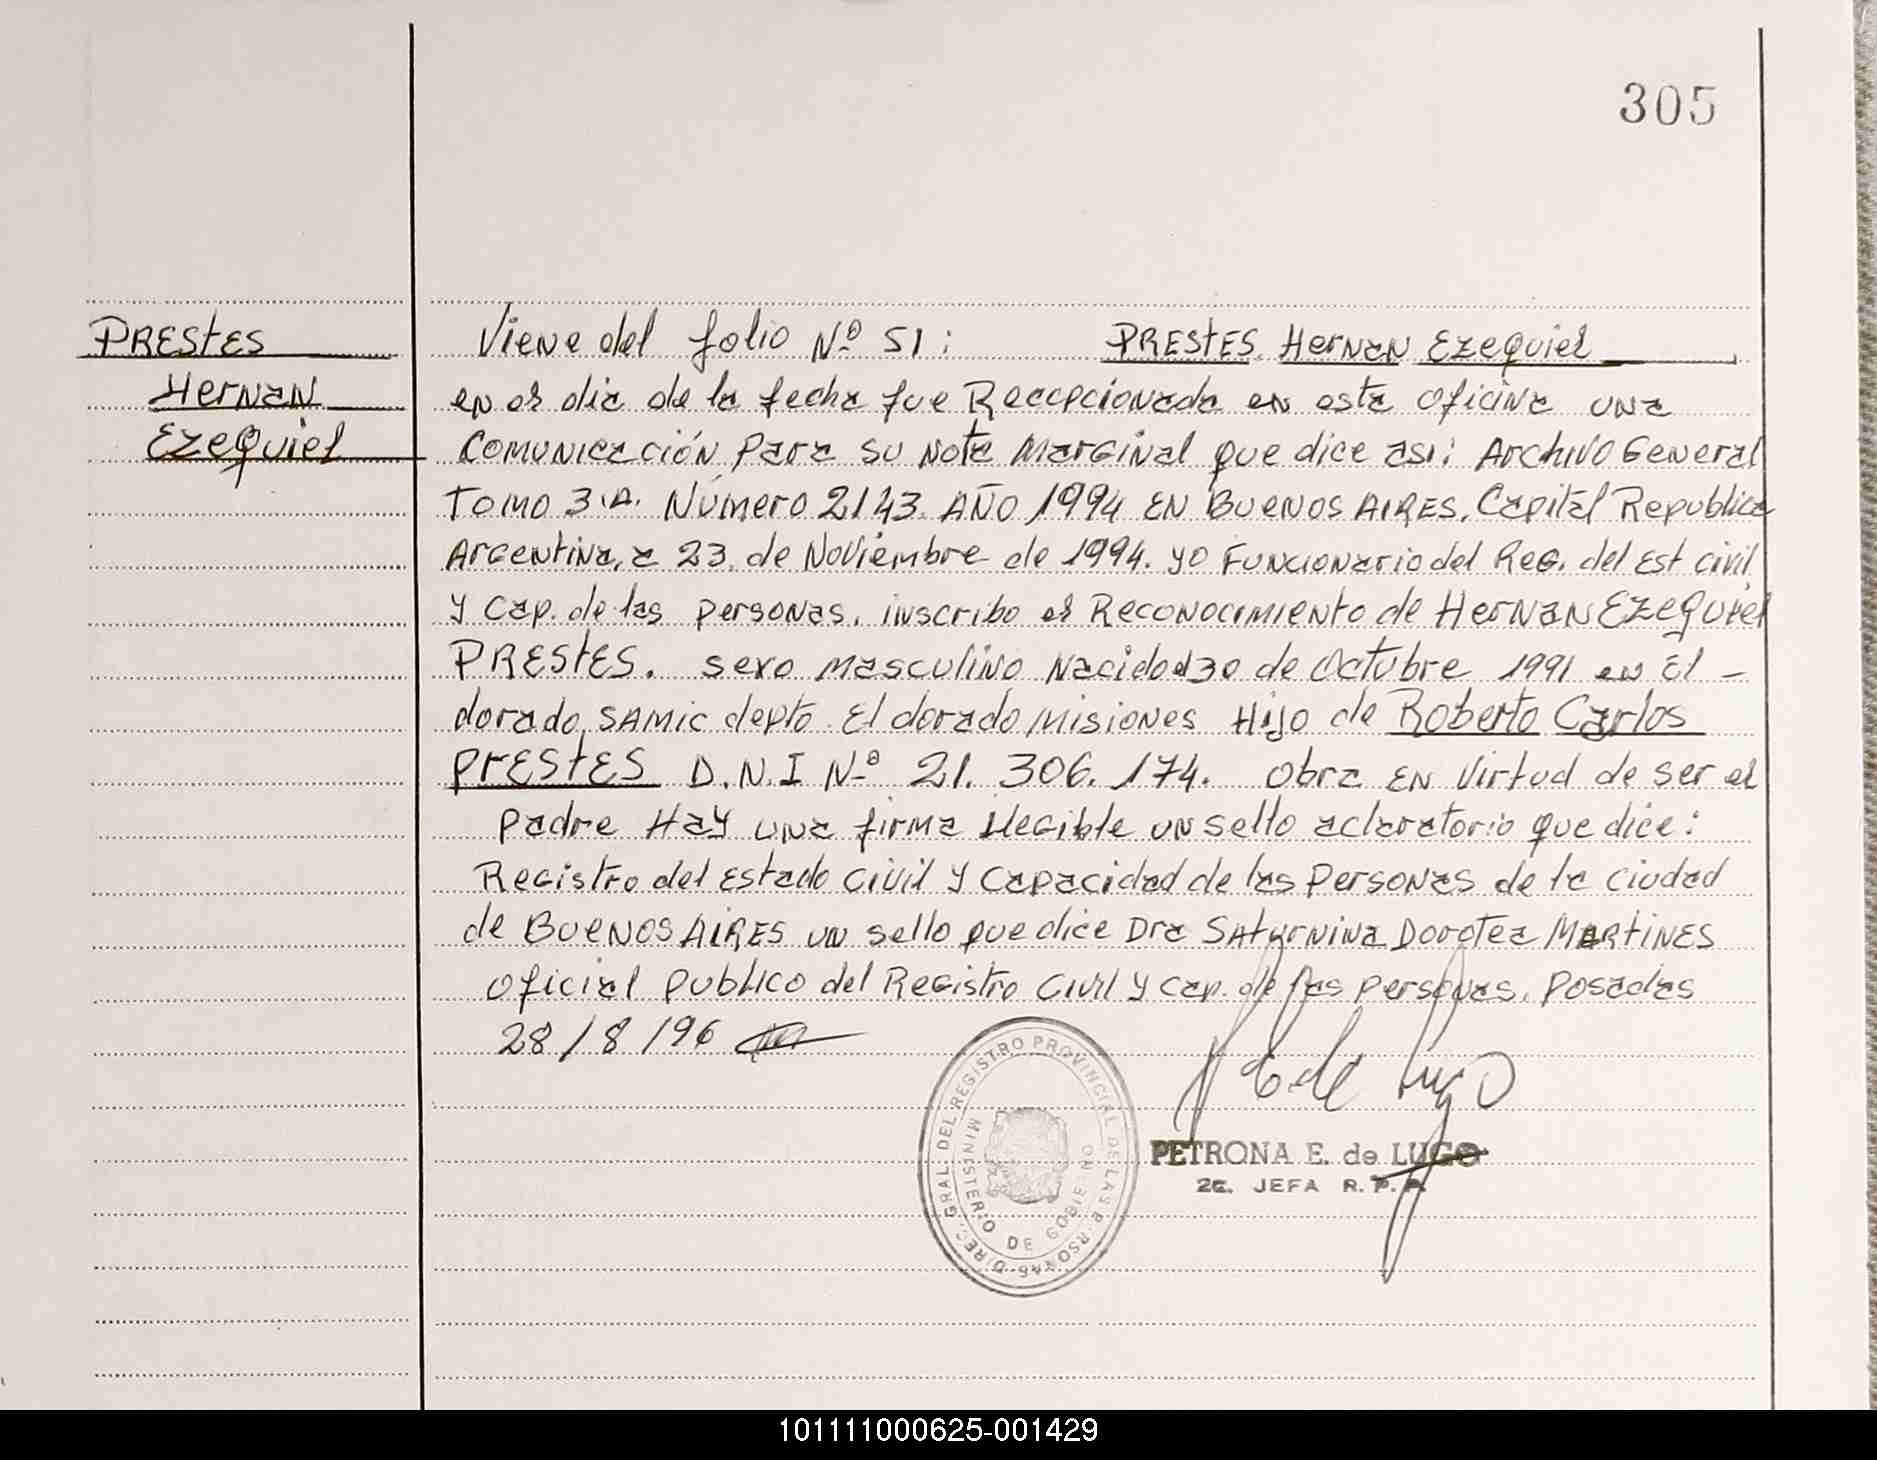 305
PRESTES
Hernan
Ezequiel
Viene del folio Nº 51: PRESTES Hernan Ezequiel
en el dia de la fecha fue Recepcionada en esta oficina una
Comunicación para su nota marginal que dice asi: Archivo General
Tomo 3 A. Número 2143. AÑO 1994 EN BUENOS AIRES, Capital Republica
Argentina, a 23. de Noviembre de 1994. yo Funcionario del Reg. del Est civil
y cap. de las personas. inscribo el Reconocimiento de Hernan EZEQuiel
PRESTES. sexo masculino Nacido el 30 de Octubre 1991 en El -
dorado, SAMIC depto. El dorado Misiones Hijo de Roberto Carlos
PrESTES D.N.I Nº 21.306.174. Obra EN Virtud de ser el
padre Hay una firma ilegible un sello aclaratorio que dice:
Registro del Estado Civil y Capacidad de las Personas de la ciudad
de BUENOS AIRES un sello que dice Dra SATURNINA Dorotea MARTINES
oficial publico del Registro Civil y cap. de las personas. Posadas
28/8/96
DIREC. GRAL. DEL REGISTRO PROVINCIAL DE LAS PERSONAS
MINISTERIO DE GOBIERNO
P E de Lugo
PETRONA E. de LUGO
2a. JEFA R. P. P.
101111000625-001429